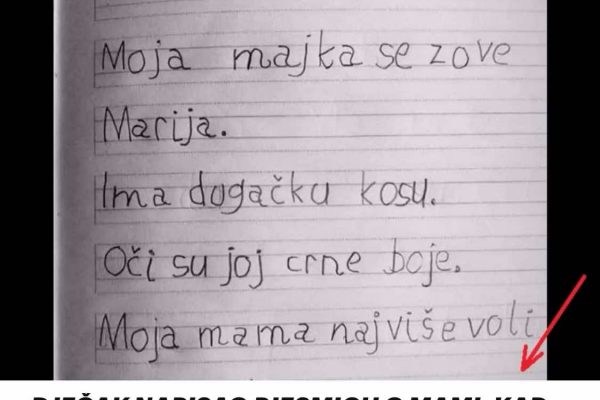 Moja majka se zove
Marija.
Ima dugačku kosu.
Oči su joj crne boje.
Moja mama najviše voli